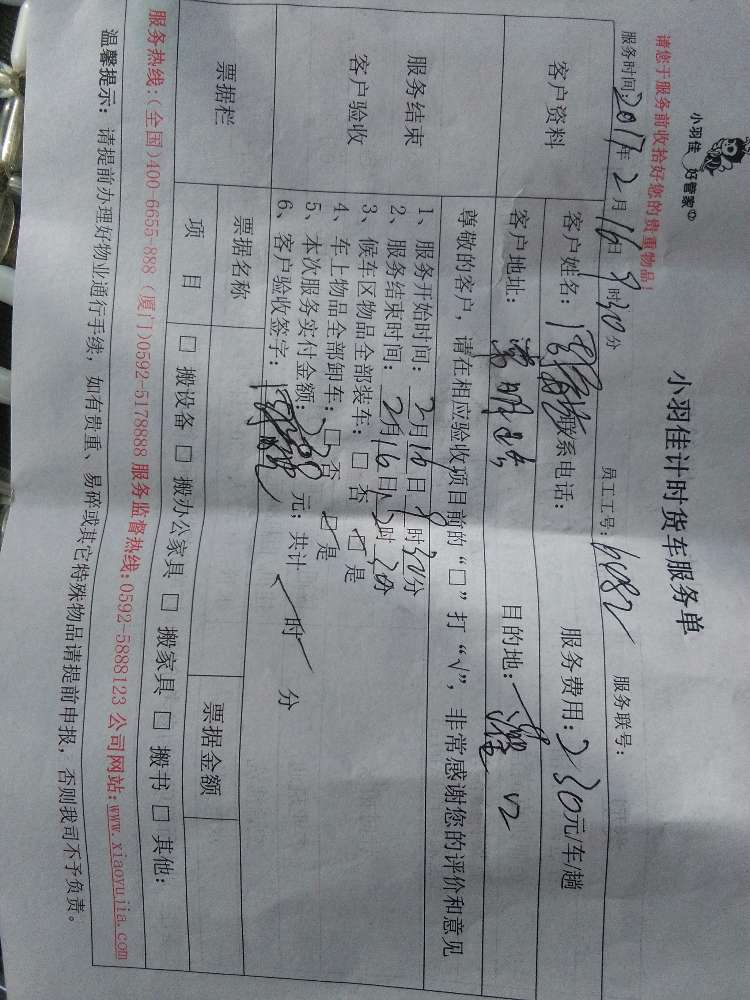 小羽佳 好管家
小羽佳计时货车服务单
请您于服务前收拾好您的贵重物品！
员工工号：6482 服务联号：
服务时间：2017年2月16日9时30分
客户资料
客户姓名： 联系电话： 服务费用：230元/车/趟
客户地址： 目的地：
服务结束
客户验收
尊敬的客户，请在相应验收项目前的“□”打“√”，非常感谢您的评价和意见
1、服务开始时间：2月16日9时30分
2、服务结束时间：2月16日 时30分
3、候车区物品全部装车：□ 否 ☑ 是
4、车上物品全部卸车：□ 否 ☑ 是
5、本次服务实付金额：230元；共计 时 分
6、客户验收签字：
票据栏
票据名称 票据金额
项 目 □ 搬设备 □ 搬办公家具 □ 搬家具 □ 搬书 □ 其他：
服务热线：(全国)400-6655-888 (厦门)0592-5178888 服务监督热线：0592-5888123 公司网站：www.xiaoyujia.com
温馨提示：请提前办理好物业通行手续，如有贵重、易碎或其它特殊物品请提前申报，否则我司不予负责。